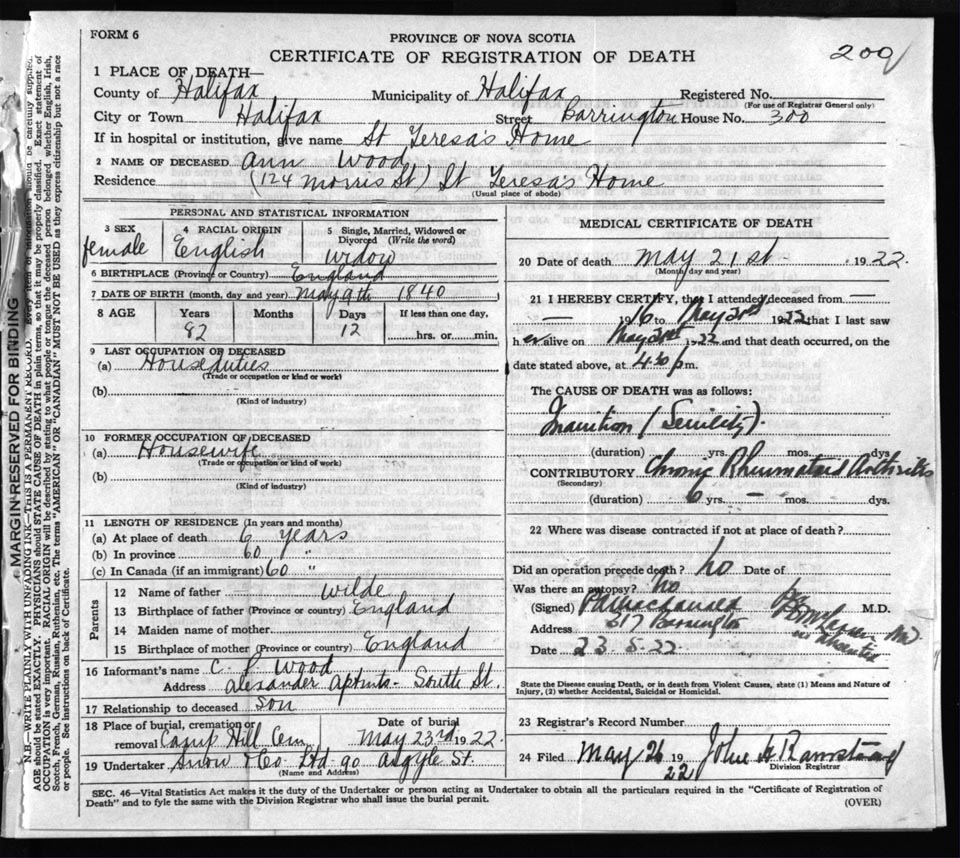 FORM 6
PROVINCE OF NOVA SCOTIA
CERTIFICATE OF REGISTRATION OF DEATH
209
1 PLACE OF DEATH—
County of Halifax Municipality of Halifax Registered No.
(For use of Registrar General only)
City or Town Halifax Street Barrington House No. 300
If in hospital or institution, give name St Teresa's Home
2 NAME OF DECEASED Ann Wood
Residence (124 Morris St) St Teresa's Home
(Usual place of abode)
PERSONAL AND STATISTICAL INFORMATION
3 SEX female
4 RACIAL ORIGIN English
5 Single, Married, Widowed or Divorced (Write the word) Widow
6 BIRTHPLACE (Province or Country) England
7 DATE OF BIRTH (month, day and year) May 9th 1840
8 AGE Years Months Days If less than one day,
82 12 hrs. or min.
9 LAST OCCUPATION OF DECEASED
(a) House duties
(Trade or occupation or kind or work)
(b)
(Kind of industry)
10 FORMER OCCUPATION OF DECEASED
(a) Housewife
(Trade or occupation or kind of work)
(b)
(Kind of industry)
11 LENGTH OF RESIDENCE (In years and months)
(a) At place of death 6 years
(b) In province 60 "
(c) In Canada (if an immigrant) 60 "
Parents
12 Name of father Wilde
13 Birthplace of father (Province or country) England
14 Maiden name of mother
15 Birthplace of mother (Province or country) England
16 Informant's name C. P. Wood
Address Alexander Aptmts - South St.
17 Relationship to deceased son
18 Place of burial, cremation or removal Camp Hill Cem
Date of burial May 23rd 1922
19 Undertaker Snow & Co Ltd 90 Argyle St.
(Name and Address)
MEDICAL CERTIFICATE OF DEATH
20 Date of death May 21st 1922.
(Month, day and year)
21 I HEREBY CERTIFY, that I attended deceased from —
— 1916 to May 20th 1922 that I last saw
her alive on May 20th 1922 and that death occurred, on the
date stated above, at 4.30 p m.
The CAUSE OF DEATH was as follows:
Inanition (Senility).
(duration) yrs. mos. dys.
CONTRIBUTORY Chronic Rheumatoid Arthritis
(Secondary)
(duration) 6 yrs. — mos. dys.
22 Where was disease contracted if not at place of death?
Did an operation precede death? No Date of
Was there an autopsy? No
(Signed) M.D.
Address 217 Barrington
Date 23.5.22.
State the Disease causing Death, or in death from Violent Causes, state (1) Means and Nature of
Injury, (2) whether Accidental, Suicidal or Homicidal.
23 Registrar's Record Number
24 Filed May 26 1922 John
Division Registrar
SEC. 46—Vital Statistics Act makes it the duty of the Undertaker or person acting as Undertaker to obtain all the particulars required in the "Certificate of Registration of
Death" and to fyle the same with the Division Registrar who shall issue the burial permit.
(OVER)
MARGIN RESERVED FOR BINDING
N.B.—WRITE PLAINLY WITH UNFADING INK—THIS IS A PERMANENT RECORD. Every item of information should be carefully supplied.
AGE should be stated EXACTLY. PHYSICIANS should STATE CAUSE OF DEATH in plain terms, so that it may be properly classified. Exact statement of
OCCUPATION is very important. RACIAL ORIGIN will be described by stating to what people or tongue the deceased person belonged whether English, Irish,
Scotch, French, German, Russian, Ruthenian, etc. The terms "AMERICAN" OR "CANADIAN" MUST NOT BE USED as they express citizenship but not a race
or people. See instructions on back of Certificate.